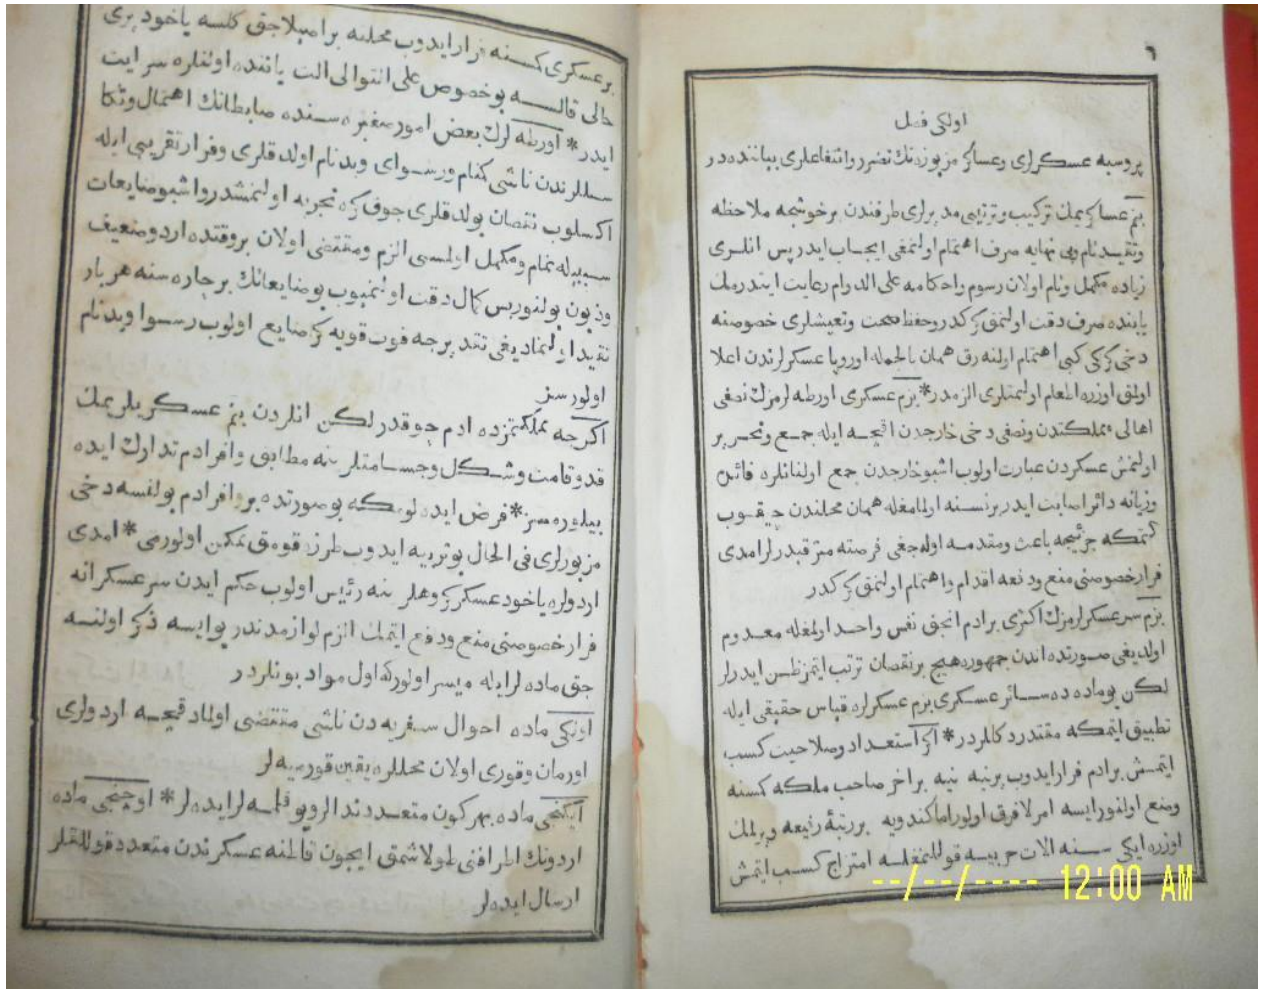 ٦
اولكى فصل
پروسيه عسكرلرى وعساكر مزبوره نك تضرر وانتفاعلرى بياننده در
بزم عساكريمك تركيب وترتيبى مدبرلرى طرفندن برخوشجه ملاحظه
وتقييد تام وبى نهايه صرف اهتمام اولنمغى ايجاب ايدر پس انلرى
زياده مكمل وتام اولان رسوم واحكامه على الدوام رعايت ايتدرمك
بابنده صرف دقت اولنمق كركدر وحفظ صحت وتعيشلرى خصوصنه
دخى كركى كبى اهتمام اولنه رق همان بالجمله اوروپا عسكرلرندن اعلا
اولمق اوزره اطعام اولنمقلرى الزمدر * بزم عسكرى اورطه لرمزك نصفى
اهالى مملكتدن ونصفى دخى خارجدن اقچه ايله جمع وتحرير
اولنمش عسكردن عبارت اولوب اشبو خارجدن جمع اولنانلره فائده
وزيانه دائر اصابت ايدر برنسنه اولمامغله همان محلندن چيقوب
كتمكه جزئيجه باعث ومقدمه اوله جغى فرصته مترقبدرلر امدى
فرار خصوصنى منع ودفعه اقدام واهتمام اولنمق كركدر
بزم سرعسكرلرمزك اكثرى برادم انجق نفس واحد اولمغله معدوم
اولديغى صورتده اندن جمهوره هيچ برنقصان ترتب ايتمز ظن ايدرلر
لكن بوماده ده سائر عسكرى بزم عسكرلره قياس حقيقى ايله
تطبيق ايتمكه مقتدر دكللردر * اكر استعداد وصلاحيت كسب
ايتمش برادم فرار ايدوب يرينه ينه براخر صاحب ملكه كسنه
وضع اولنور ايسه امر لافرق اولور اما كندويه بررتبۀ رفيعه ويرلمك
اوزره ايكى سنه الات حربيه قوللنمغله امتزاج كسب ايتمش
برعسكرى كسنه فرار ايدوب محلنه براميلاجق كلسه ياخود يرى
خالى قالسه بوخصوص على التوالى الت ياننده اولنلره سرايت
ايدر * اورطه لرك بعض امور صغيره سنده ضابطانك اهمال وتكا
سللرندن ناشى كمنام ورسواى وبدنام اولدقلرى وفرار تقريبى ايله
اكسلوب نقصان بولدقلرى چوق كره تجربه اولنمشدر واشبو ضايعات
سببيله تمام ومكمل اولمسى الزم ومقتضى اولان بروقتده اردو ضعيف
وزبون بولنور پس كمال دقت اولنميوب بوضايعاتك برچاره سنه هربار
تقيد اولنماديغى تقديرجه قوت قويه كز ضايع اولوب رسوا وبدنام
اولورسز
اكرچه مملكتمزده ادم چوقدر لكن انلردن بزم عسكريلريمك
قد وقامت وشكل وجسامتلرينه مطابق وافر ادم تدارك ايده
بيلورميسز * فرض ايده لومكه بوصورتده بر وافر ادم بولنسه دخى
مزبورلرى فى الحال بو تربيه ايدوب طرزه قومق ممكن اولورمى * امدى
اردولره ياخود عسكر كروهلرينه رئيس اولوب حكم ايدن سرعسكرانه
فرار خصوصنى منع ودفع ايتمك الزم لوازمدندر بوايسه ذكر اولنه
جق ماده لر ايله ميسر اولور كه اول مواد بونلردر
اولكى ماده احوال سفريه دن ناشى مقتضى اولمادقجه اردولرى
اورمان وقورى اولان محللره يقين قورميه لر
ايكنجى ماده بهركون متعدد دفعه الرويوقلمه لر ايده لر * اوچنجى ماده
اردونك اطرافنى طولاشمق ايچون قاطنه عسكرندن متعدد قوللقلر
ارسال ايده لر
--/--/---- 12:00 AM